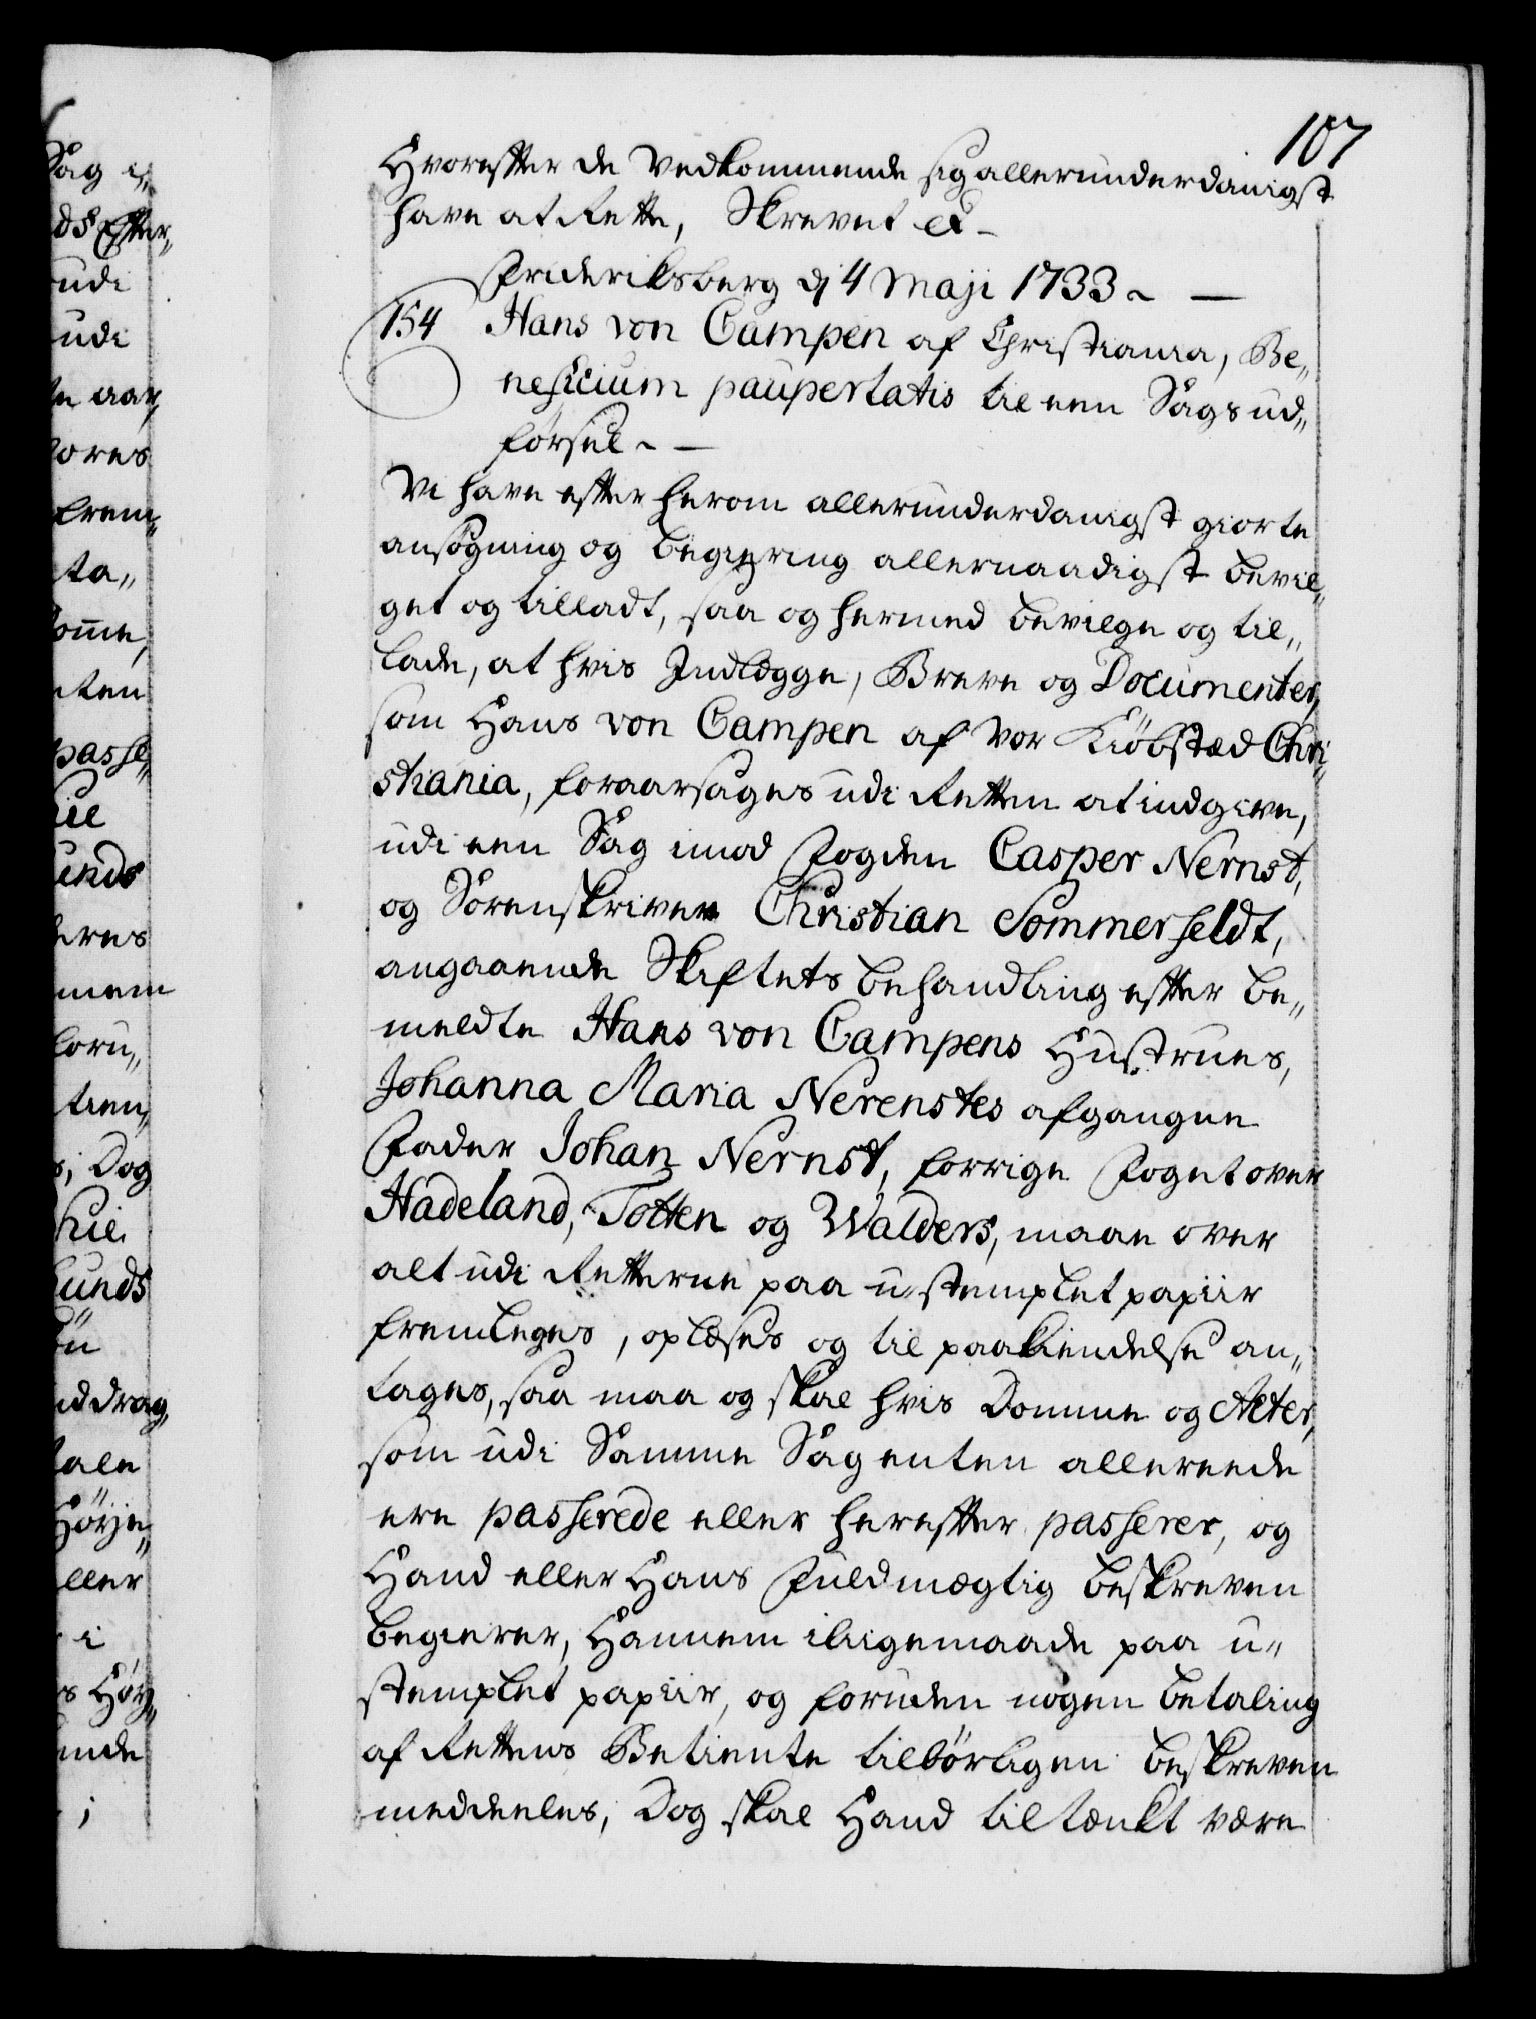 107
Hvorefter de Vedkommende sig allerunderdanigst
have at Rette, Skrevet &
Frideriksberg dj 4 Maji 1733 ~ —
154 Hans von Campen af Christiania, Be„
neficium paupertatis til een Sags ud„
førsel ~ —
Vi have efter herom allerunderdanigst giorte
ansøgning og begiering allernaadigst bevil„
get og tilladt, saa og hermed bevilge og til„
lade, at hvis Indlegge, Breve og Documenter,
som Hans von Campen af vor Kiöbstæd Chri„
stiania, foraarsages udi Retten at indgive,
udi een Sag imod Fogden Casper Nernst,
og Sorenskriver Christian Sommerfeldt,
angaaende Skiftets behandling efter be„
meldte Hans von Campens Hustrues,
Johanna Maria Nerenstes afgangne
Fader Johan Nernst, forrige Foget over
Hadeland, Totten og Walders, maae over
alt udi Retterne paa u-stemplet papiir
fremlegges, oplæses og til paakiendelse an„
tages, saa maa og skal hvis Domme og Acter,
som udi Samme Sag enten allereede
ere passerede eller herefter passerer, og
Hand eller Hans Fuldmægtig beskreven
begierer, Hannem iligemaade paa u„
stemplet papiir, og foruden nogen betaling
af Rettens Betiente tilbørligen beskreven
meddeeles, Dog skal Hand tiltænkt være
Sag i„
ds Efter„
udi
udi
te aar,
vores
frem„
ta„
omme,
nten
passe„
unds
eres
forn„
tien„
s, Dog
unds
nddrag„
tale
Höye„
ller
i
s Höy„
ende
;